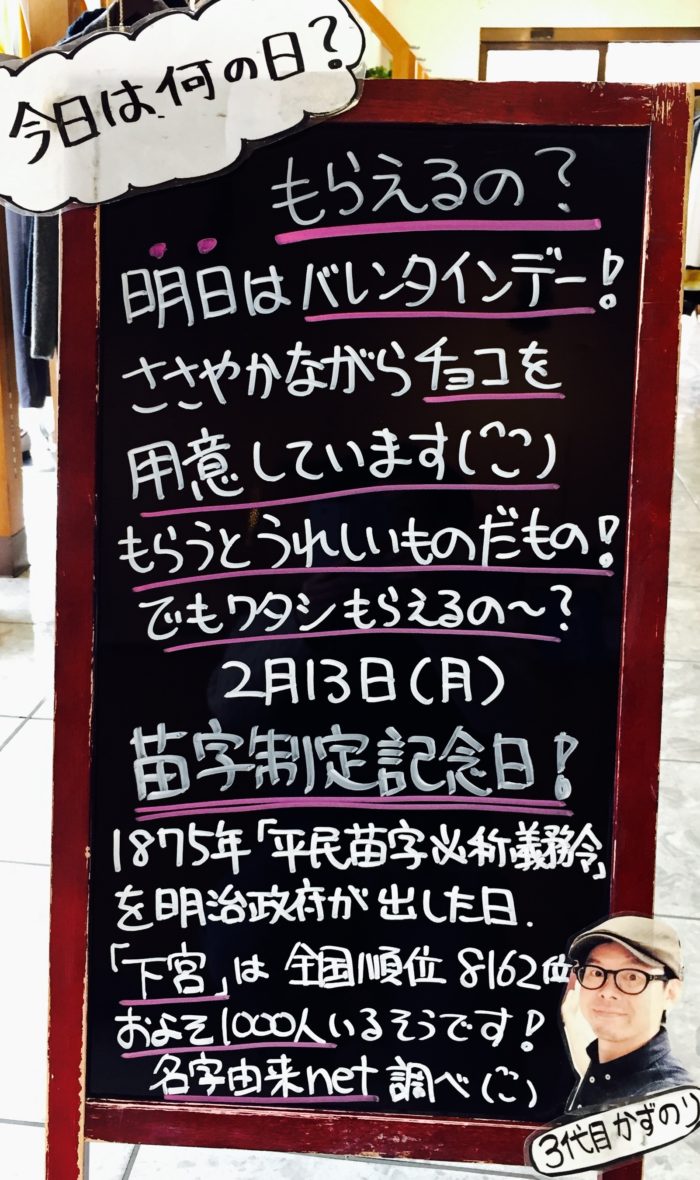 今日は何の日?
もらえるの?
明日はバレンタインデー!
ささやかながらチョコを
用意しています(^こ)
もらうとうれしいものだもの!
でもワタシもらえるの〜?
2月13日(月)
苗字制定記念日!
1875年「平民苗字必称義務令」
を明治政府が出した日.
「下宮」は全国順位8162位
およそ1000人いるそうです!
名字由来net調べ(こ)
3代目かずのり